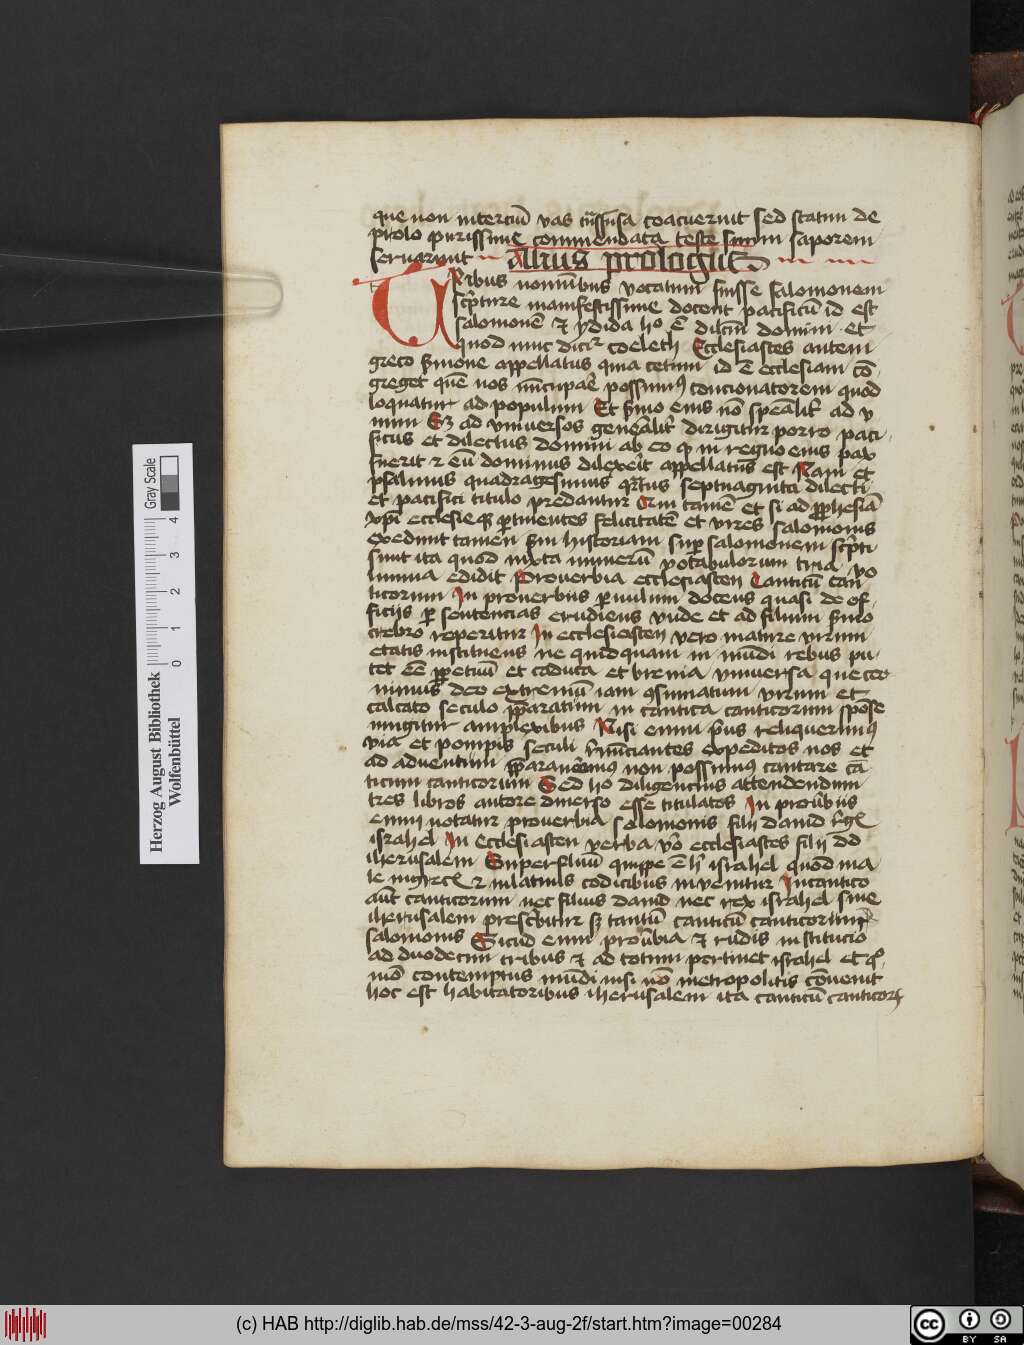 que non in terciū vas trāsfusa coacuerunt sed statim de
prolo purissime commendata teste suum saporem
servarunt Allius prologus
Tribus nominibus vocatum fuisse salomonem
scpture manifestissime docent pacificū id est
salomonē et ydida hoc ē dilcm domini et
quod nunc dicit coeleth Ecclesiastes autem
greco smone appellatus quia cetum id ē ecclesiam cō
greget quē nos nūcupare possumus concionatorem quod
loquatur ad populum Et smo eius nō spealit ad v
num Sz ad vniversos genealit dirigitur porro paci
ficus et dilectus domini ab eo q in regno eius pax
fuerit et eū dominus dilexerit appellatus est Nam et
psalmus quadragesimus qrtus septuagintā dilecti
et pacifici titulo predantur Qui tamē et si ad pphesiā
xpi ecclesieqz ptinentes felicitatē et vires salomonis
excedunt tamen scm historiam super salomonem scpti
sunt ita quod iuxta numerū votabulorum tria vo
lumina edidit Proverbia ecclesiasten Canticū can
ticorum In proverbiis parvulum docens quasi de of
ficiis per sentencias erudiens vnde et ad filium smo
crebro reperitur In ecclesiasten vero mature virum
etatis instituens ne quidquam in mūdi rebus pu
tet eē ppetuū et caduca et brevia vniversa que cer
nimus dco extremū iam 9sumatum virum et
calcato seculo pparatum in cantica canticorum sponse
iungitur amplexibus Nisi enim pus reliquerimus
via et pompis seculi renūciantes expeditos nos et
ad adventum pparaverimus non possumus cantare cā
ticum canticorum Sed hoc diligencius attendendum
tres libros autore diverso esse titulatos In proubiis
enim notatur proverbia salomonis filii david regis
israhel In Ecclesiasten verba vo ecclesiastes filii dd
iherusalem Superfluū quippe ē hic israhel quod ma
le in grecis et in latinis codicibus invenitur In cantico
aut canticorum nec filius david nec rex israhel sive
iherusalem prescbitur sz tantū canticū canticorum
salomonis Sicud enim proubia et rudis institucio
ad duodecim tribus et ad totum pertinet israhel et q
mō contemptus mūdi nisi nō metropolitis cōvenit
hoc est habitatoribus iherusalem ita canticū canticorum
Herzog August Bibliothek
Wolfenbüttel
0 1 2 3 4
Gray Scale
(c) HAB http://diglib.hab.de/mss/42-3-aug-2f/start.htm?image=00284
cc BY SA